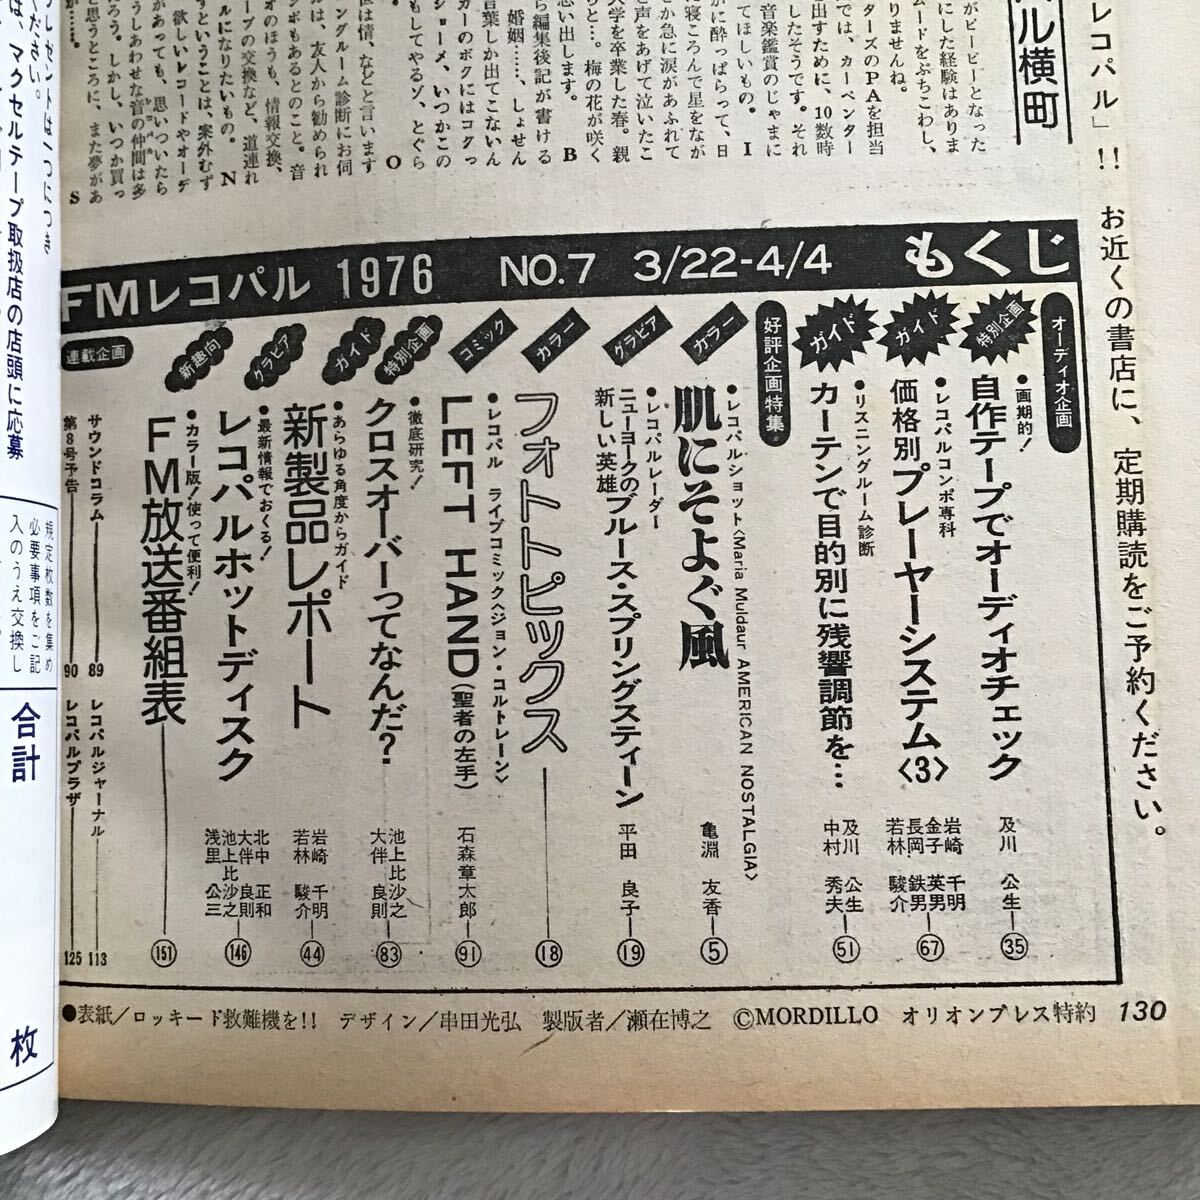 がピーピーとなった
にした経験はありま
ードをぶちこわし、
りませんね。
ターズのPAを担当
では、カーペンター
出すために、10数時
したそうです。それ
音楽鑑賞のじゃまに
てほしいもの。 I
かに酔っぱらって、日
に寝ころんで星をなが
せか急に涙があふれて
と声をあげて泣いたこ
大学を卒業した春。親
らと…。梅の花が咲く
思い出します。 B
ら編集後記が書ける
婚姻……、しょせん
言葉しか出てこないん
ショーメ、いつかこの
カーのボクにはコクっ
もしてやるゾ、とぐら
O
世は情、などと言います
ングルーム診断にお伺
ルは、友人から勧められ
ボもあるとのこと。音
オのほうも、情報交換、
ープの交換など、道連れ
ルになりたいもの。 N
すということは、案外むず
欲しいレコードやオーデ
があっても、思いついたら
うしあわせな音の仲間は多
ろう。しかし、いつか買っ
と思うところに、また夢があ
が……。 S
パル横町
レコパル」!! お近くの書店に、定期購読をご予約ください。
FMレコパル 1976 NO.7 3/22-4/4 もくじ
オーディオ企画
特別企画
●画期的!
自作テープでオーディオチェック
及川 公生
35
ガイド
●レコパルコンポ専科
価格別プレーヤーシステム〈3〉
岩崎 千明
金子 英男
長岡 鉄男
若林 駿介
67
ガイド
●リスニングルーム診断
カーテンで目的別に残響調節を…
及川 公生
中村 秀夫
51
好評企画特集
カラー
●レコパルショット〈Maria Muldaur AMERICAN NOSTALGIA〉
肌にそよぐ風
亀淵 友香
5
グラビア
●レコパルレーダー
ニューヨークの
新しい英雄
ブルース・スプリングスティーン
平田 良子
19
カラー
フォトトピックス
18
コミック
●レコパル ライブコミック〈ジョン・コルトレーン〉
LEFT HAND(聖者の左手)
石森章太郎
91
特別企画
●徹底研究!
クロスオーバーってなんだ?
池上比沙之
大伴 良則
83
ガイド
●あらゆる角度からガイド
新製品レポート
岩崎 千明
若林 駿介
44
グラビア
●最新情報でおくる!
レコパルホットディスク
北中 正和
大伴 良則
池上比沙之
浅里 公三
146
新趣向
●カラー版!使って便利!
FM放送番組表
151
連載企画
サウンドコラム 89
レコパルジャーナル 113
第8号予告 90
レコパルプラザ 125
●表紙/ロッキード救難機を!! デザイン/串田光弘 製版者/瀬在博之 ©MORDILLO オリオンプレス特約 130
レゼントは一つにつき
ください。
は、マクセルテープ取扱店の店頭に応募
規定枚数を集め
必要事項をご記
入のうえ交換し
合計
枚